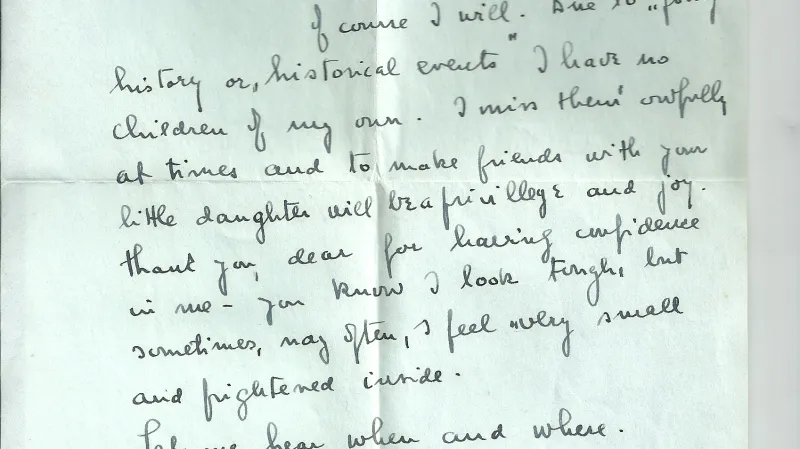 of course I will. Due to "
history or, historical events" I have no
children of my own. I miss them owfully
at times and to make friends with your
little daughter will be a privillege and joy.
thank you, dear for having confidence
in me - you know I look tough, but
sometimes, nay often, I feel very small
and frightened inside.
Let me hear when and where.